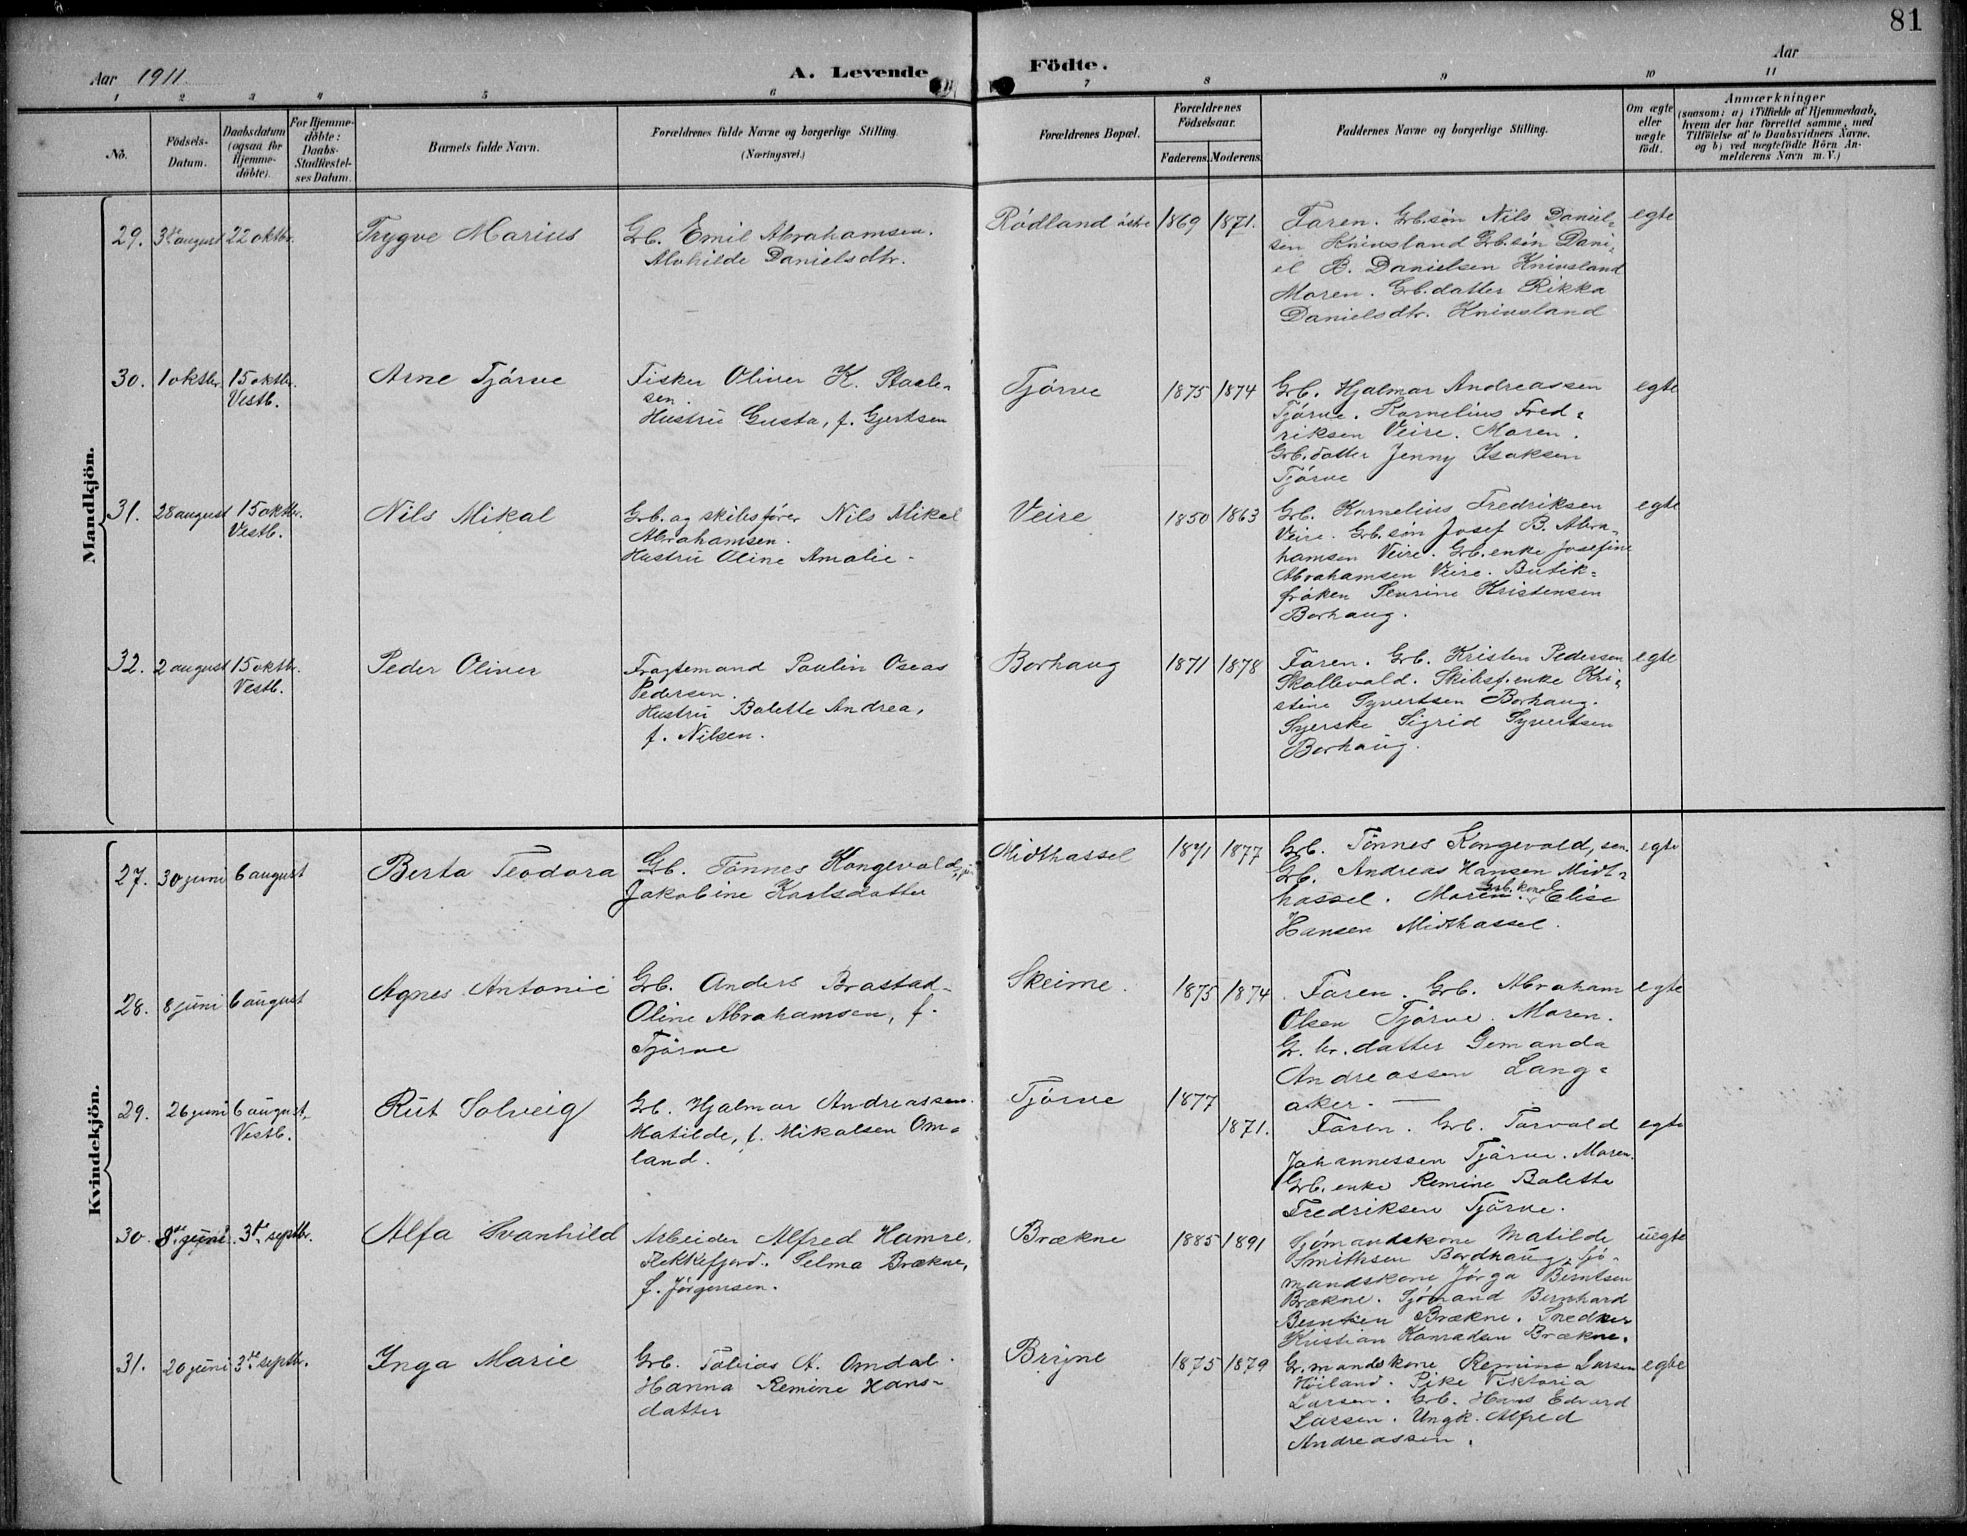 81
Aar 1911.
A. Levende Födte.
Aar
1 2 3 4 5 6 7 8 9 10 11
No.
Födsels-
Datum.
Daabsdatum
(ogsaa for
Hjemme-
döbte).
For Hjemme-
döbte:
Daabs-
Stadfæstel-
ses Datum.
Barnets fulde Navn.
Forældrenes fulde Navne og borgerlige Stilling.
(Næringsvei.)
Forældrenes Bopæl.
Forældrenes
Födselsaar.
Faderens.
Moderens.
Faddernes Navne og borgerlige Stilling.
Om ægte
eller
uægte
födt.
Anmærkninger
(saasom: a) i Tilfælde af Hjemmedaab,
hvem der har forrettet samme, med
Tilföielse af to Daabsvidners Navne.
og b) ved uægtefödte Börn An-
melderens Navn m. V.)
Mandkjön.
29. august 22 oktbr. Trygve Marius
Grb. Emil Abrahamsen.
Alvhilde Danielsdtr.
Rödland östre 1869 1871.
Faren. Grb.søn Nils Daniel-
sen Knivsland Grb.søn Dani-
el B. Danielsen Knivsland
Moren. Grb.datter Rikka
Danielsdtr. Knivsland
egte
30. 1 oktbr. 15 oktbr.
Vestb.
Arne Tjörve
Fisker Oliver K. Staale-
sen.
Hustru Gusta, f. Gjertsen
Tjörve 1875 1874
Grb. Hjalmar Andreassen
Tjörve. Kornelius Fred-
riksen Veire. Moren.
Grb.datter Jenny Isaksen
Tjörve
egte
31. 28 august 15 oktbr.
Vestb.
Nils Mikal
Grb. og skibsförer Nils Mikal
Abrahamsen.
Hustru Oline Amalie -
Veire 1850 1863
Grb. Kornelius Fredriksen
Veire. Grb.søn Josef B. Abra-
hamsen Veire. Grb.enke Josefine
Abrahamsen Veire. Butik-
fröken Sevrine Kristensen
Borhaug.
egte
32. 2 august 15 oktbr.
Vestb.
Peder Oliver
Fragtemand Paulin Oseas
Pedersen.
Hustru Bolette Andrea,
f. Nilsen.
Borhaug 1871 1878
Faren. Grb. Kristen Pedersen
Skollevold. Skibsf.enke Kri-
stine Syvertsen Borhaug.
Syerske Sigrid Syvertsen
Borhaug.
egte
Kvindekjön.
27. 30 juni 6 august Berta Teodora
Grb. Tönnes Kongevold,
Jakobine Karlsdatter
Midthassel 1871 1877
Grb. Tönnes Kongevold, sen.
Grb. Andreas Hansen Midt-
hassel. Moren. Grb.kone Elise
Hansen Midthassel.
egte
28. 8 juni 6 august Agnes Antonie
Grb. Anders Brastad-
Oline Abrahamsen, f.
Tjörve
Skeime. 1875 1874
Faren. Grb. Abraham
Olsen Tjörve. Moren.
G. br. datter Gemanda
Andreassen Lang-
aker. —
egte
29. 26 juni 6 august,
Vestb.
Rut Solveig
Grb. Hjalmar Andreassen.
Matilde, f. Mikalsen Om-
land.
Tjörve 1877
1871.
Faren. Grb. Torvald
Johannessen Tjörve. Moren.
Grb.enke Remine Bolette
Fredriksen Tjörve.
egte
30. 8de juni. 3de septbr. Alfa Svanhild
Arbeider Alfred Hamre,
Flekkefjord. Selma Brækne,
f. Jörgensen.
Brækne 1885 1891
Sjömandskone Matilde
Smithsen Bordhaug, sjö-
mandskone Jörga Berntsen
Brækne. Sjömand Bernhard
Berntsen Brækne. Snedker
Kristian Konradsen Brækne.
uegte
31. 20 juni 3de septbr. Inga Marie
Grb. Tobias A. Omdal.
Hanna Remine Hans-
datter
Bryne 1875 1879
Gr.mandskone Remine Larsen
Höiland. Pike Viktoria
Larsen. Grb. Hans Edvard
Larsen. Ungk. Alfred
Andreassen.
egte